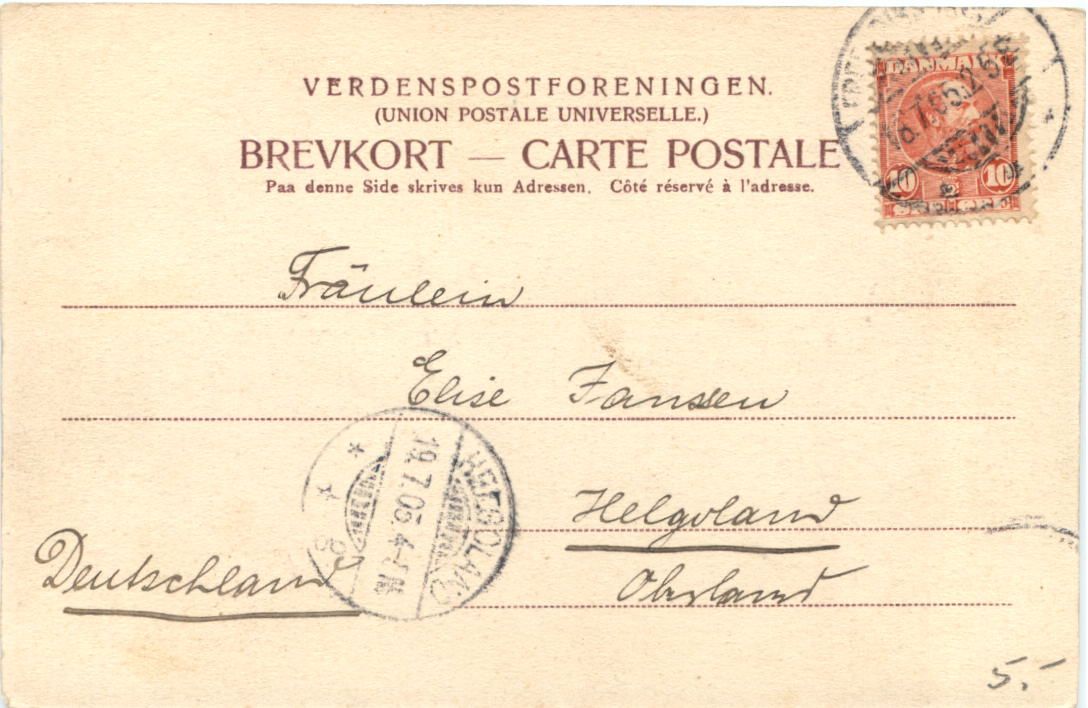 VERDENSPOSTFORENINGEN.
(UNION POSTALE UNIVERSELLE.)
BREVKORT — CARTE POSTALE
Paa denne Side skrives kun Adressen. Côté réservé à l'adresse.
DANMARK
10 10
Fräulein
Elise Jansen
Helgoland
Oberland
Deutschland
HELGOLAND
19.7.05.4-5N.
5.-